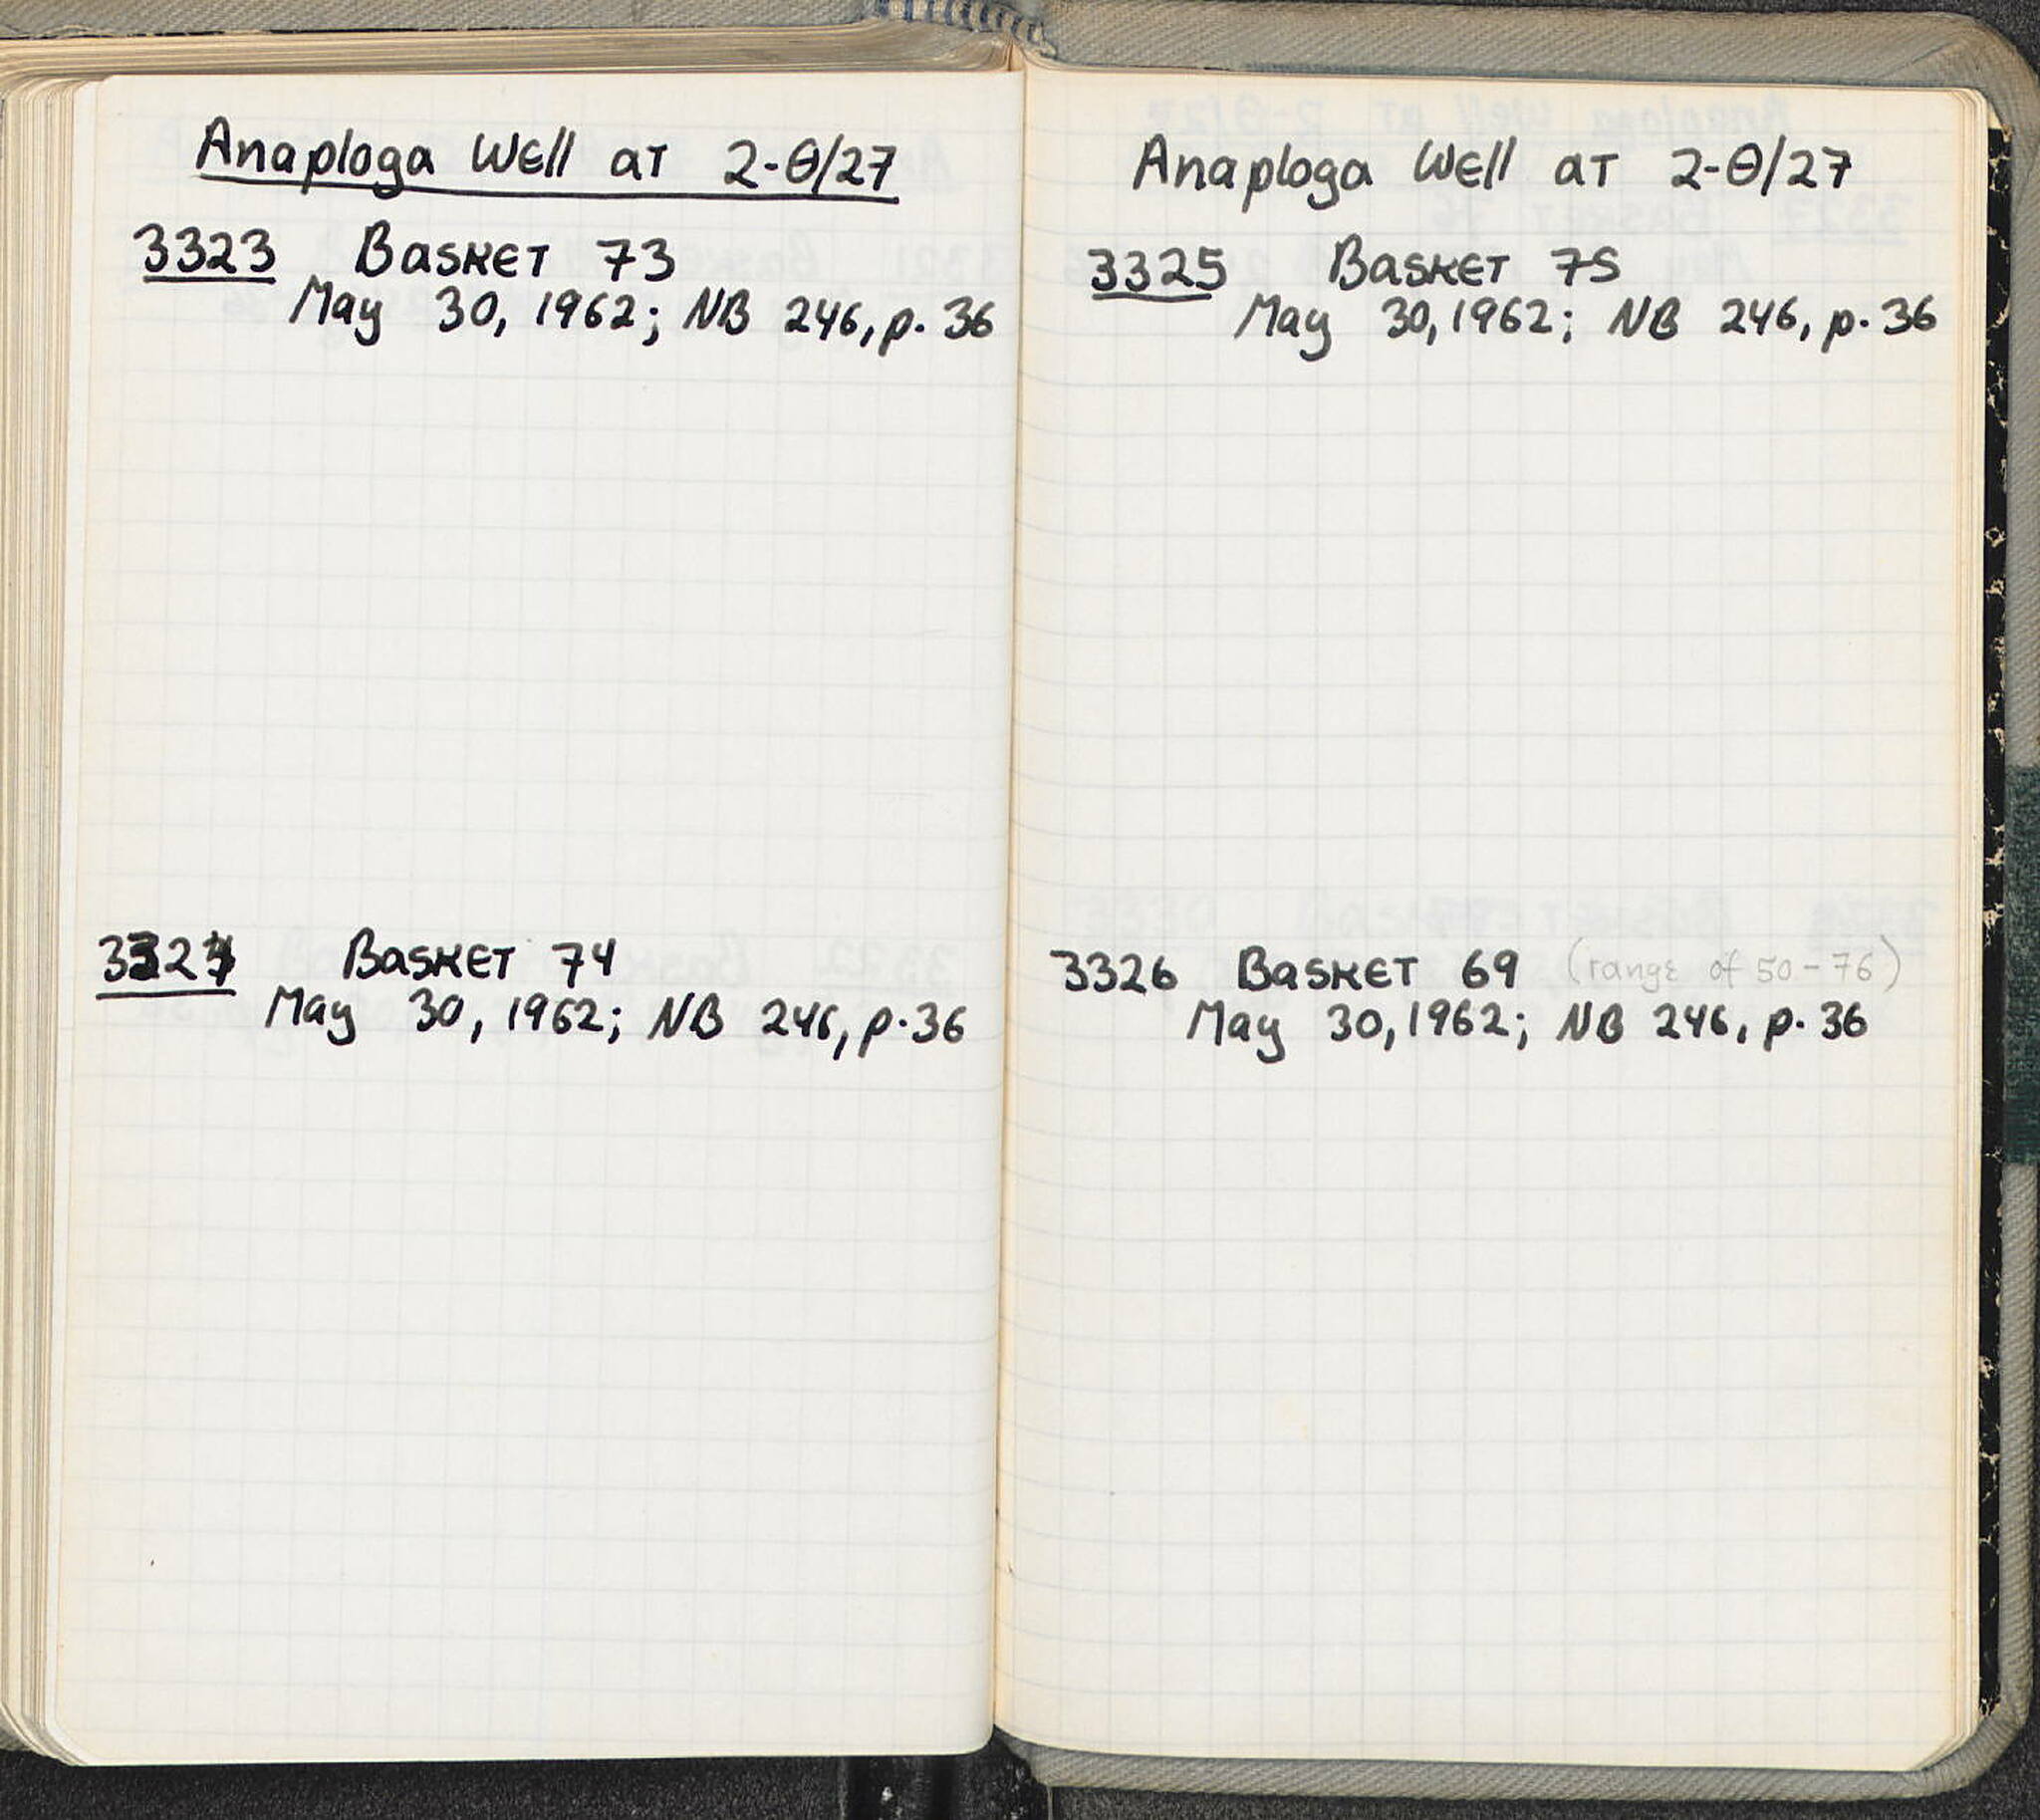 Anaploga Well at 2-Θ/27
3323 Basket 73
May 30, 1962; NB 246, p. 36
3324 Basket 74
May 30, 1962; NB 246, p. 36
Anaploga Well at 2-Θ/27
3325 Basket 75
May 30, 1962; NB 246, p. 36
3326 Basket 69 (range of 50-76)
May 30, 1962; NB 246, p. 36